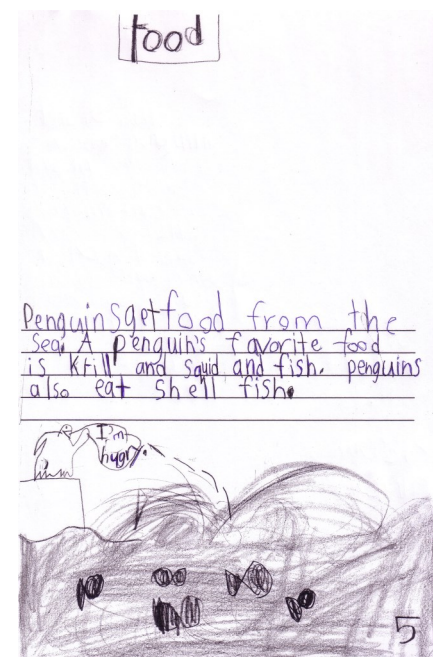 food
Penguins get food from the
Sea. A penguin's favorite food
is krill and squid and fish. penguins
also eat shell fish.
I'm
hugry.
5